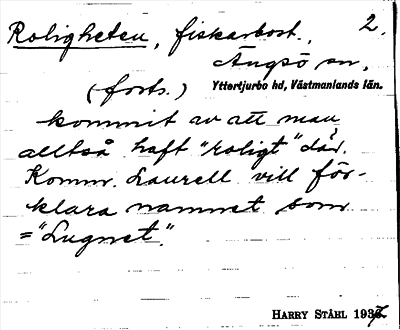 Roligheten, fiskarbost., 2.
Ängsö sn,
(forts.) Yttertjurbo hd, Västmanlands län.
kommit av att man
alltså haft "roligt" där.
Komm. Laurell vill för-
klara namnet som
="Lugnet".
HARRY STÅHL 1937